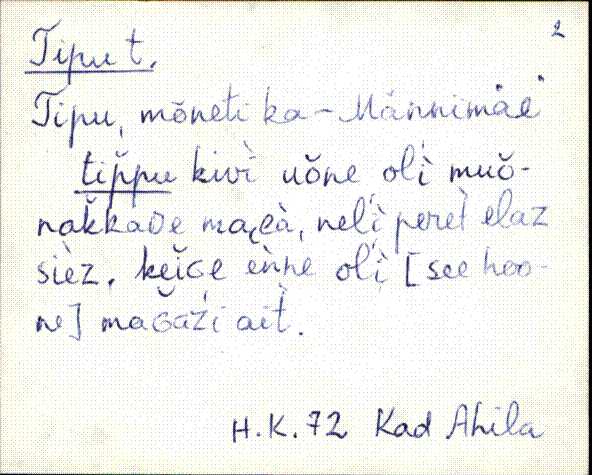 2
Tipu t.
Tipu, mõneti ka – Männimäe
tip̆pu kivì uŏne, oĺì muŏ-
nak̆kaᴅe maɢà, neĺì peret elaz
sièz. keĭɢe ènne oĺì [see hoo-
ne] maɢaźi aìt.
H.K. 72 Kad Ahila